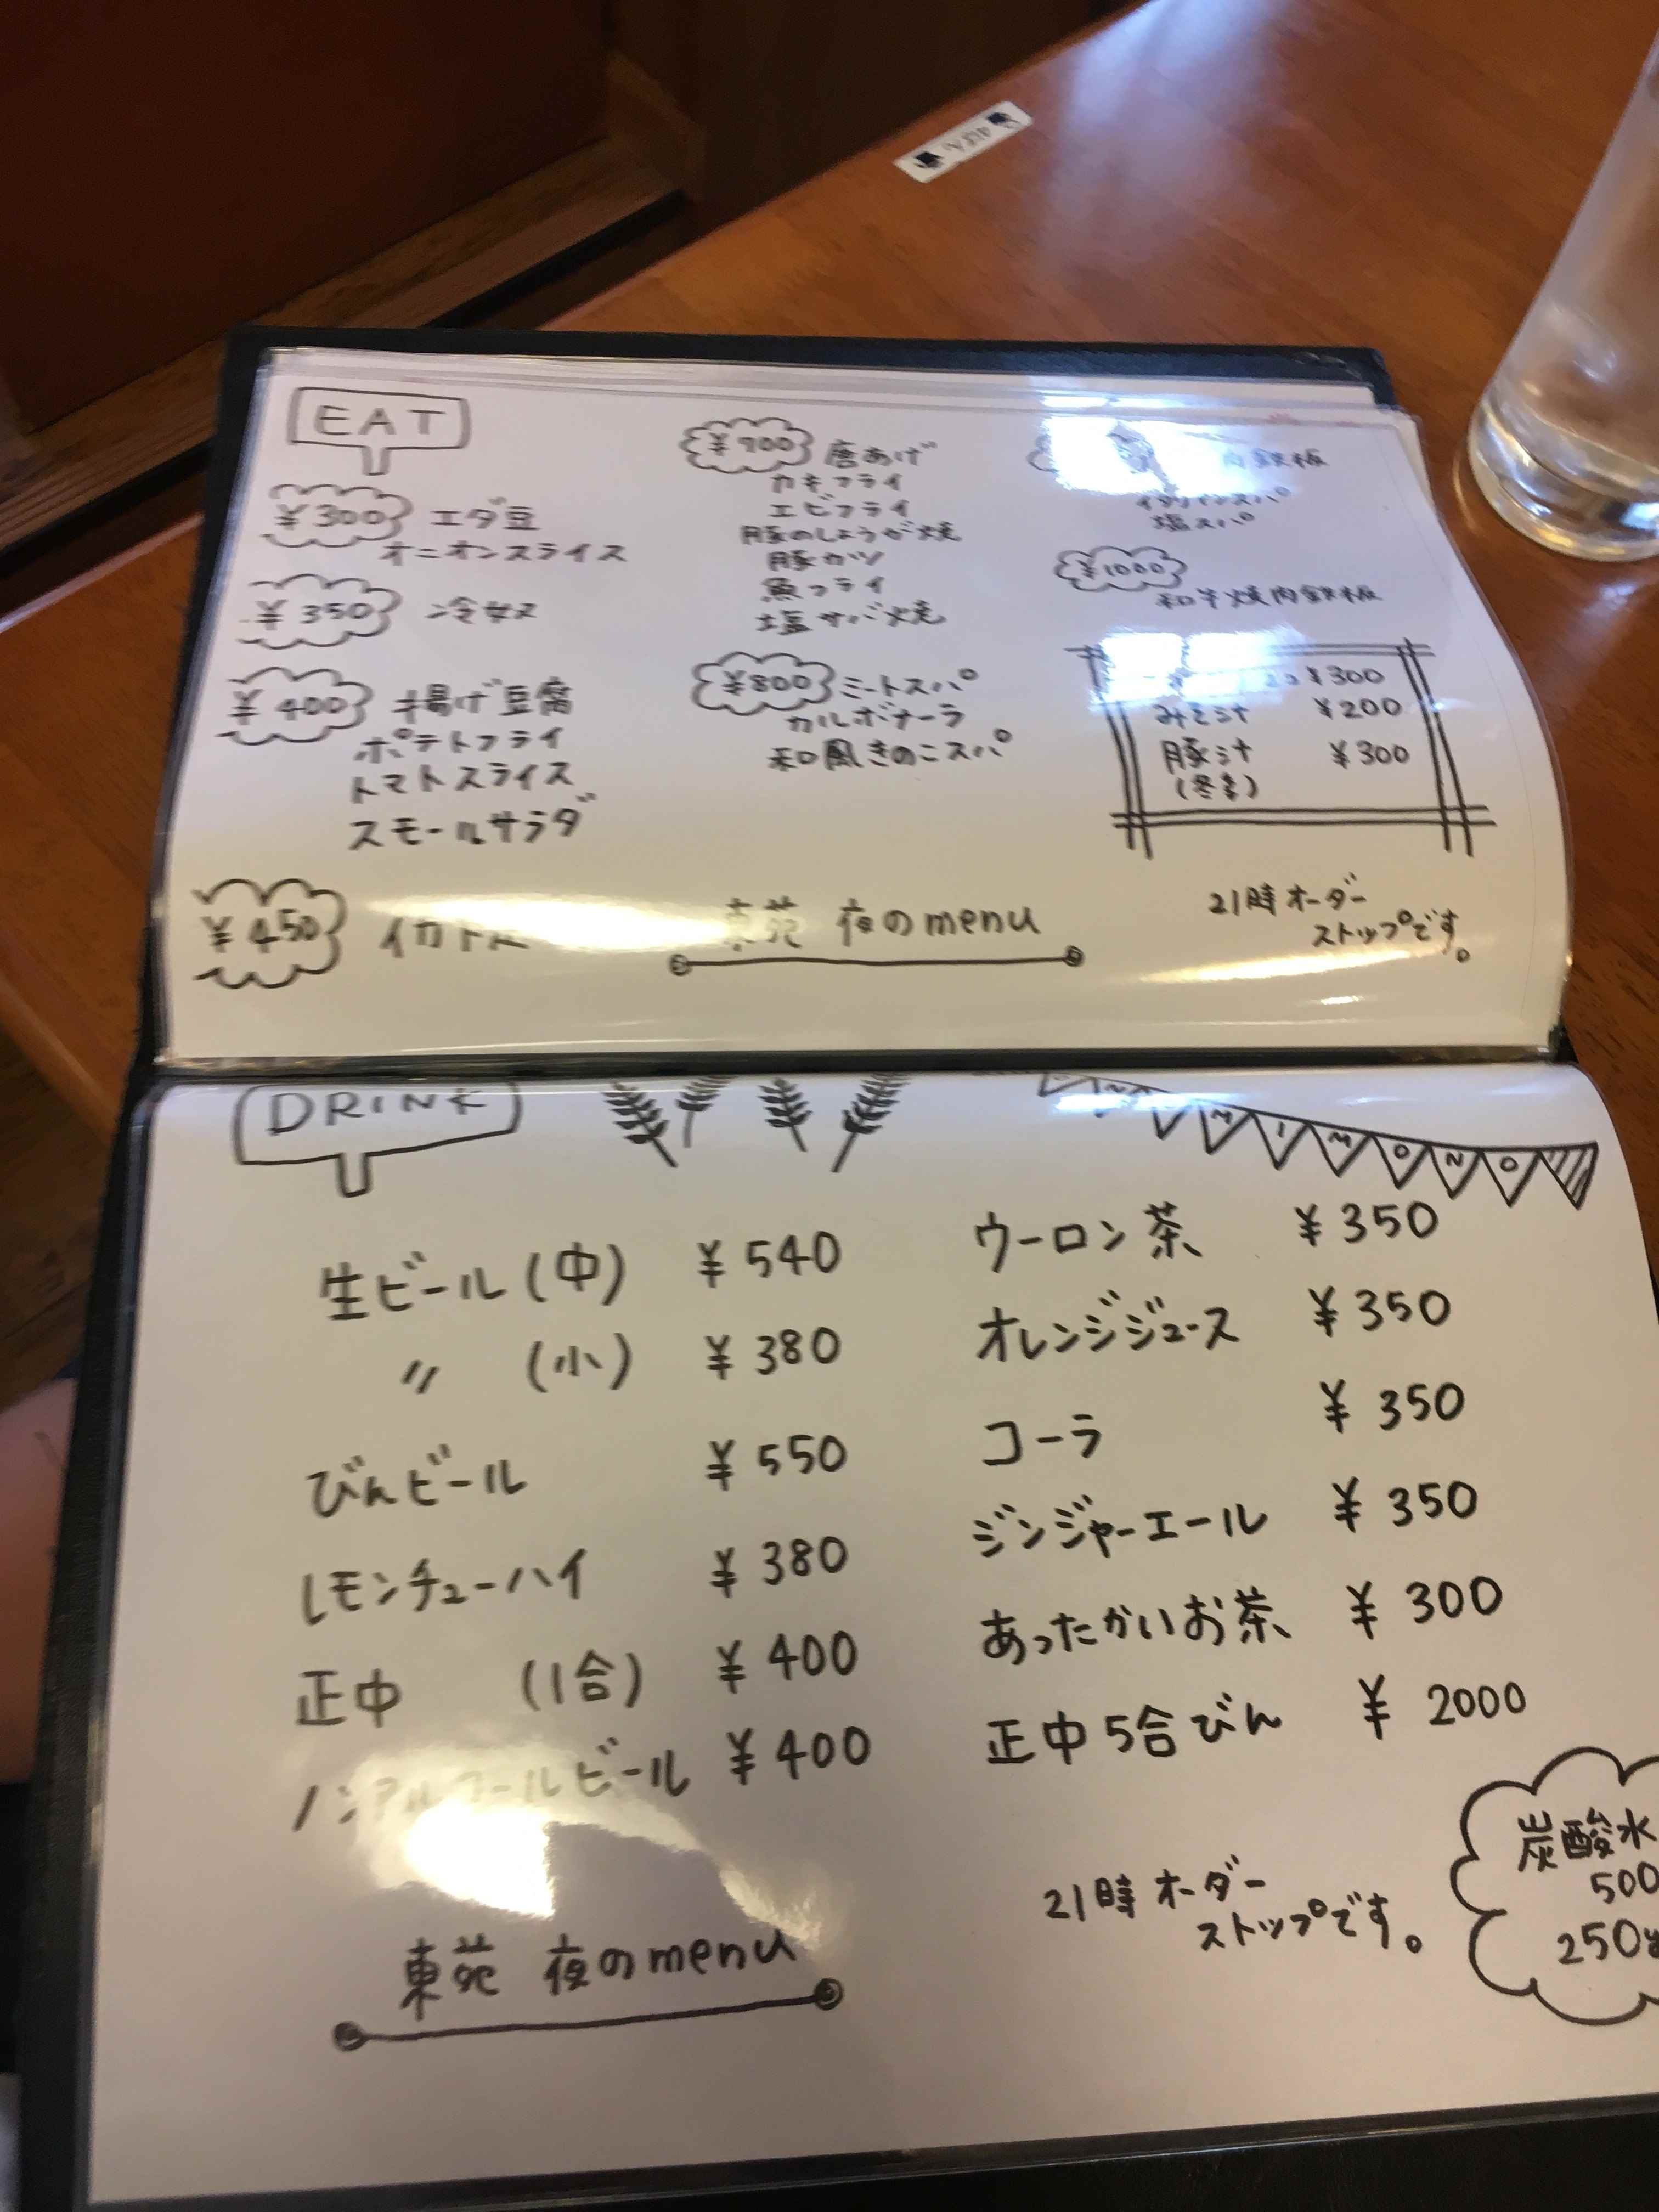 EAT
¥300 エダ豆
オニオンスライス
¥350 冷奴
¥400 揚げ豆腐
ポテトフライ
トマトスライス
スモールサラダ
¥450
¥700 唐あげ
カキフライ
エビフライ
豚のしょうが焼
豚カツ
魚フライ
塩サバ焼
¥800 ミートスパ
カルボナーラ
和風きのこスパ
肉鉄板
イタリアンスパ
塩スパ
¥1000
和牛焼肉鉄板
¥300
みそ汁 ¥200
豚汁 ¥300
(冬季)
東苑 夜のmenu
21時オーダー
ストップです。
DRINK
NOMIMONO
生ビール(中) ¥540
〃 (小) ¥380
びんビール ¥550
レモンチューハイ ¥380
正中 (1合) ¥400
ノンアルコールビール ¥400
ウーロン茶 ¥350
オレンジジュース ¥350
コーラ ¥350
ジンジャーエール ¥350
あったかいお茶 ¥300
正中5合びん ¥2000
炭酸水
500
250
21時オーダー
ストップです。
東苑 夜のmenu